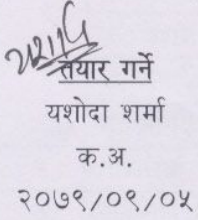 तयार गर्ने
यशोदा शर्मा
क.अ.
२०७९/०९/०५